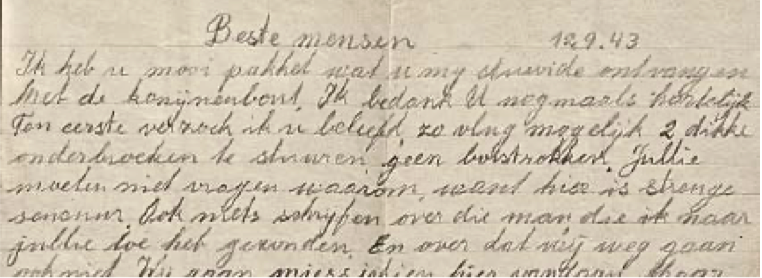 Beste mensen 12.9.43
Ik heb u mooi pakket wat u my stuurde ontvangen
Met de konijnenbout. Ik bedank U nogmaals hartelijk
Ten eerste verzoek ik u beleefd zo vlug mogelijk 2 dikke
onderbroeken te sturen, geen borstrokken. Jullie
moeten niet vragen waarom, want hier is strenge
sensuur. Ook niets schrijfen over die man, die ik naar
jullie toe heb gezonden. En over dat wij weg gaan
ook niet. Wij gaan hier vandaan